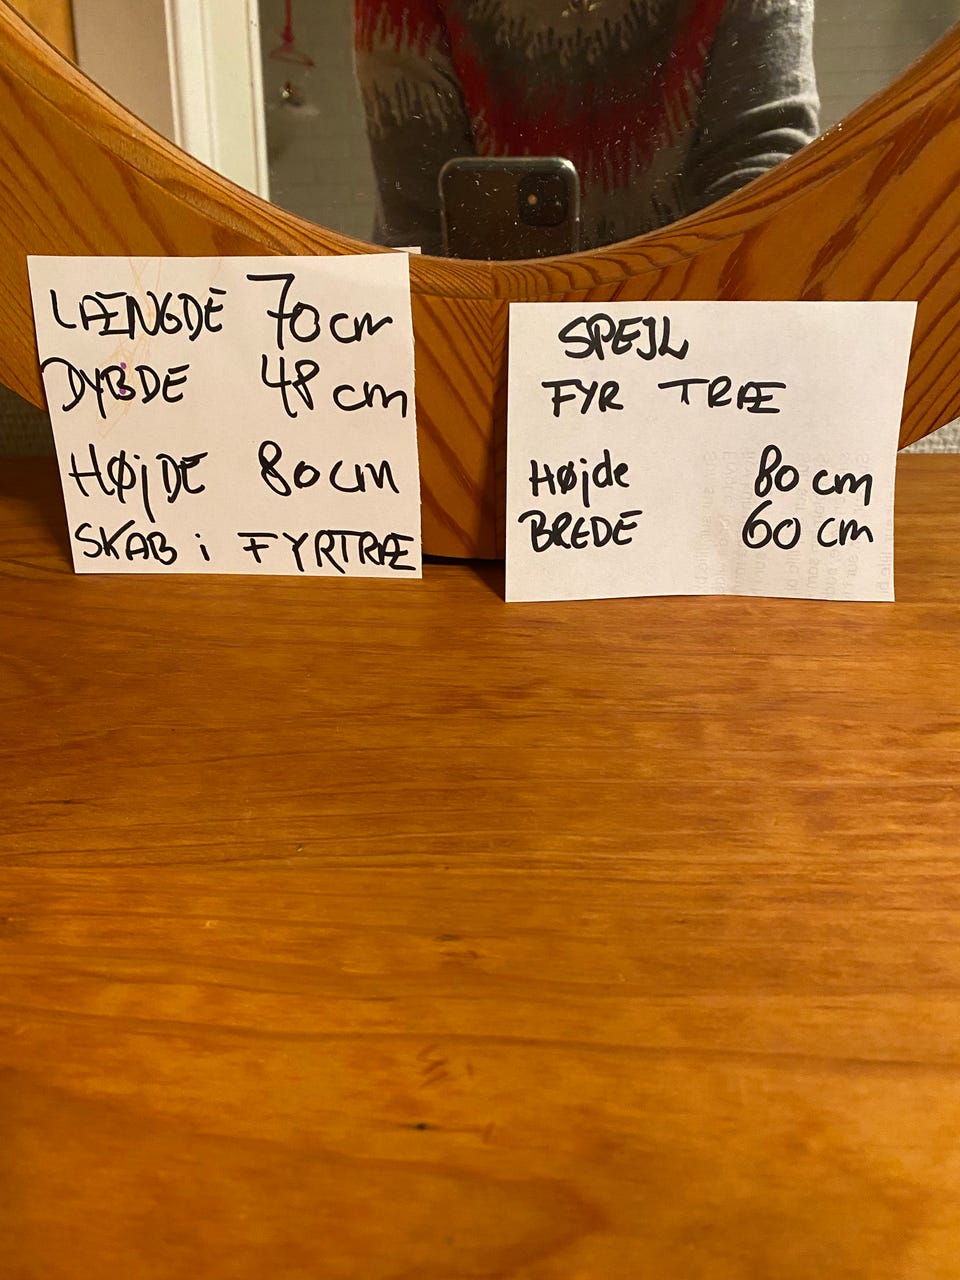 LÆNGDE 70 cm
DYBDE 48 cm
HØjDE 80 cm
SKAB i FYRTRÆ
SPEJL
FYR TRÆ
Højde 80 cm
BREDE 60 cm